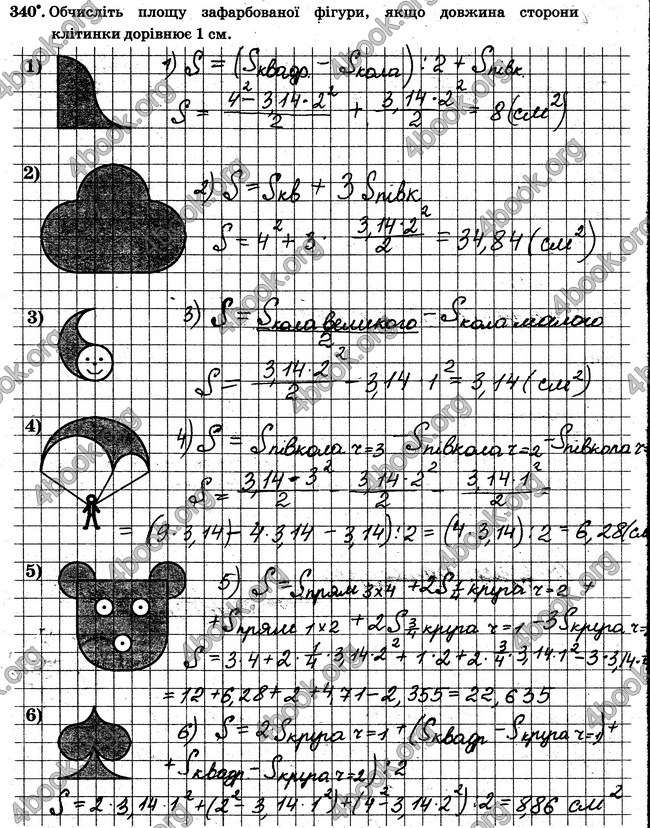 340°. Обчисліть площу зафарбованої фігури, якщо довжина сторони
клітинки дорівнює 1 см.
1) 1) S = (Sквадр. - Sкола) : 2 + Sпівк.
S = (4² - 3,14·2²)/2 + (3,14·2²)/2 = 8 (см²)
2) 2) S = Sкв + 3 Sпівк.
S = 4² + 3 · (3,14·2²)/2 = 34,84 (см²)
3) 3) S = Sкола великого/2 - Sкола малого
S = (3,14·2²)/2 - 3,14 1² = 3,14 (см²)
4) 4) S = Sпівкола r=3 - Sпівкола r=2 - Sпівкола r=
S = (3,14 - 3²)/2 - (3,14·2²)/2 - (3,14·1²)/2 =
= (9·3,14) - 4·3,14 - 3,14) : 2 = (4·3,14) : 2 = 6,28 (см
5) 5) S = Sпрям 3х4 + 2S ¼ круга r=2 +
+ Sпрям 1х2 + 2S ¾ круга r=1 - 3Sкруга r=
S = 3·4 + 2·¼·3,14·2² + 1·2 + 2·¾·3,14·1² - 3·3,14·
= 12 + 6,28 + 2 + 4,71 - 2,355 = 22,635
6) 6) S = 2Sкруга r=1 + (Sквадр - Sкруга r=1) +
+ Sквадр - Sкруга r=2) : 2
S = 2·3,14·1² + (2² - 3,14·1²) + (4² - 3,14·2²) : 2 = 8,86 см²
4book.org